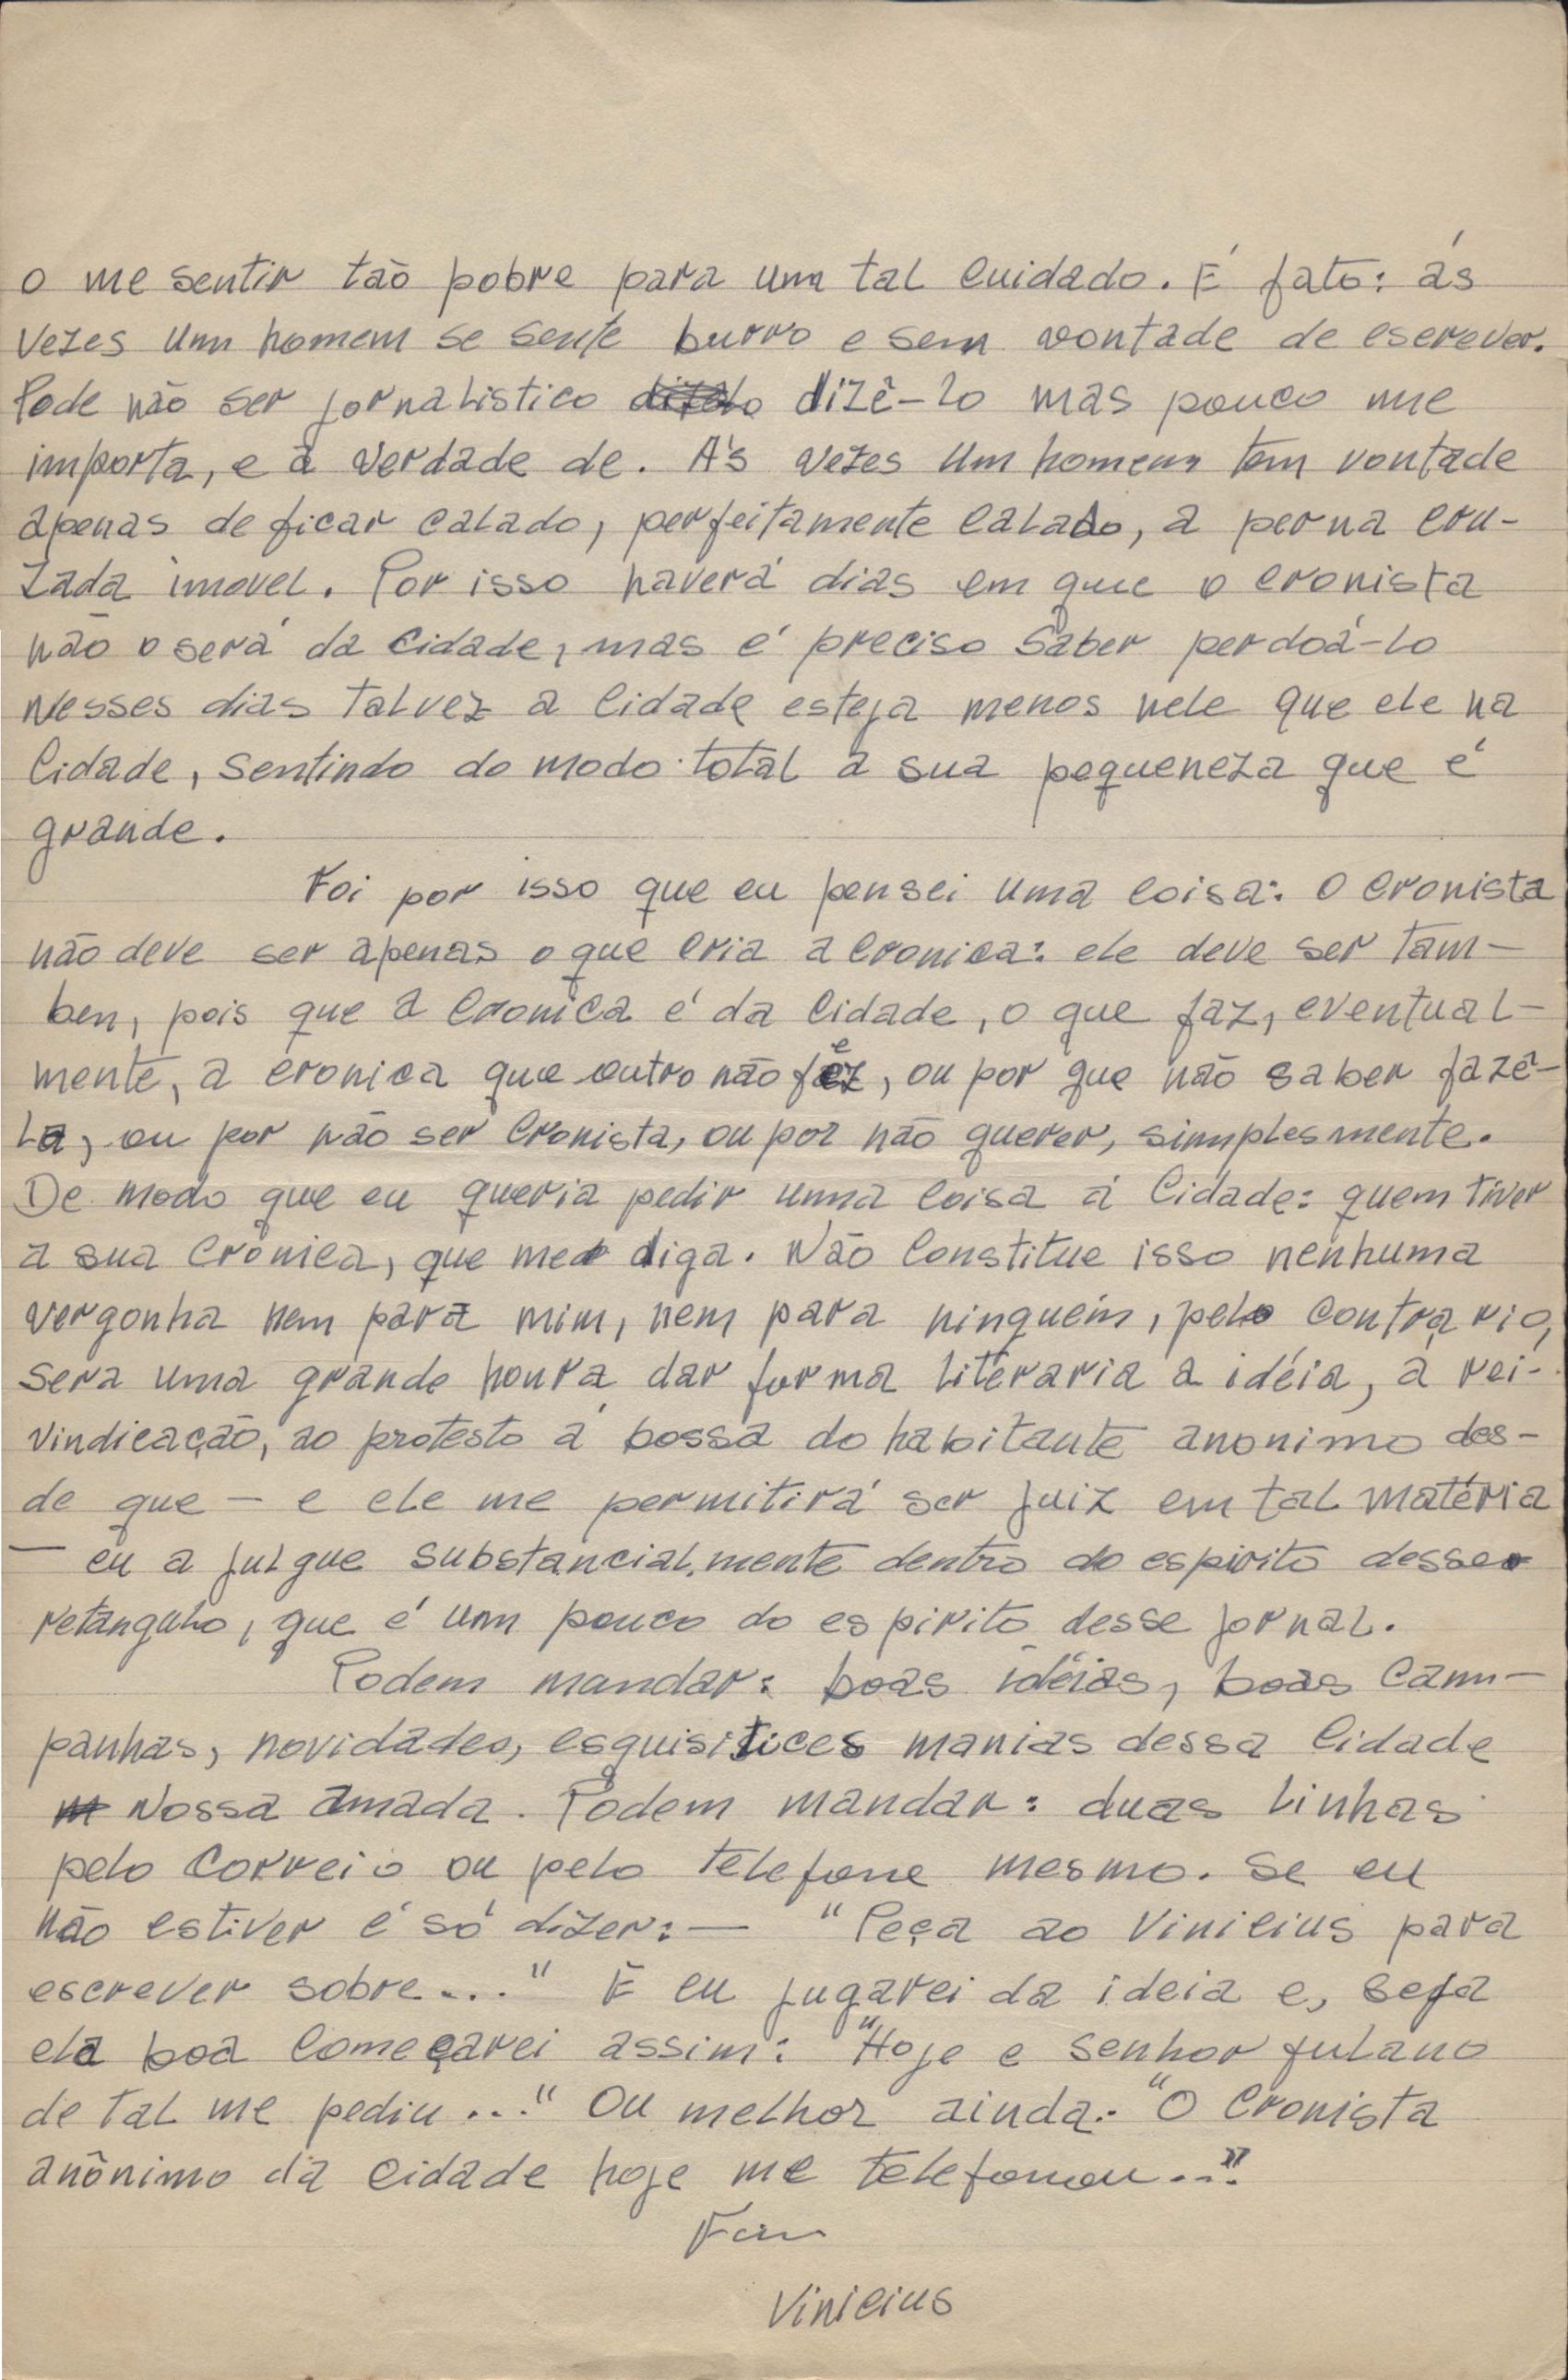 o me sentir tão pobre para um tal cuidado. É fato: ás
vezes um homem se sente burro e sem vontade de escrever.
Pode não ser jornalistico dizê-lo mas pouco me
importa, e a verdade de. A's vezes um homem tem vontade
apenas de ficar calado, perfeitamente calado, a perna cru-
zada imovel. Por isso haverá dias em que o cronista
não o será da cidade, mas é preciso saber perdoá-lo
Nesses dias talvez a cidade esteja menos nele que ele na
cidade, sentindo do modo total a sua pequeneza que é
grande.
Foi por isso que eu pensei uma coisa: o cronista
não deve ser apenas o que cria a cronica: ele deve ser tam-
ben, pois que a cronica é da cidade, o que faz, eventual-
mente, a cronica que outro não fêz, ou por que não saber fazê-
la, ou por não ser cronista, ou por não querer, simplesmente.
De modo que eu queria pedir uma coisa á cidade: quem tiver
a sua crônica, que me diga. Não constitue isso nenhuma
vergonha nem para mim, nem para ninguém, pelo contrario,
sera uma grande honra dar forma literaria a idéia, a rei-
vindicação, ao protesto á bossa do habitante anonimo des-
de que - e ele me permitirá ser juiz em tal matéria
- eu a julgue substancialmente dentro do espirito desse
retangulo, que é um pouco do espirito desse jornal.
Podem mandar: boas idéias, boas cam-
panhas, novidades, esquisitices manias dessa cidade
nossa amada. Podem mandar: duas linhas
pelo correio ou pelo telefone mesmo. Se eu
não estiver é só dizer: - "Peça ao Vinicius para
escrever sobre..." E eu jugarei da ideia e, seja
ela boa começarei assim: "Hoje e senhor fulano
de tal me pediu..." Ou melhor ainda: "O cronista
anônimo da cidade hoje me telefonou..."
Fim
Vinicius